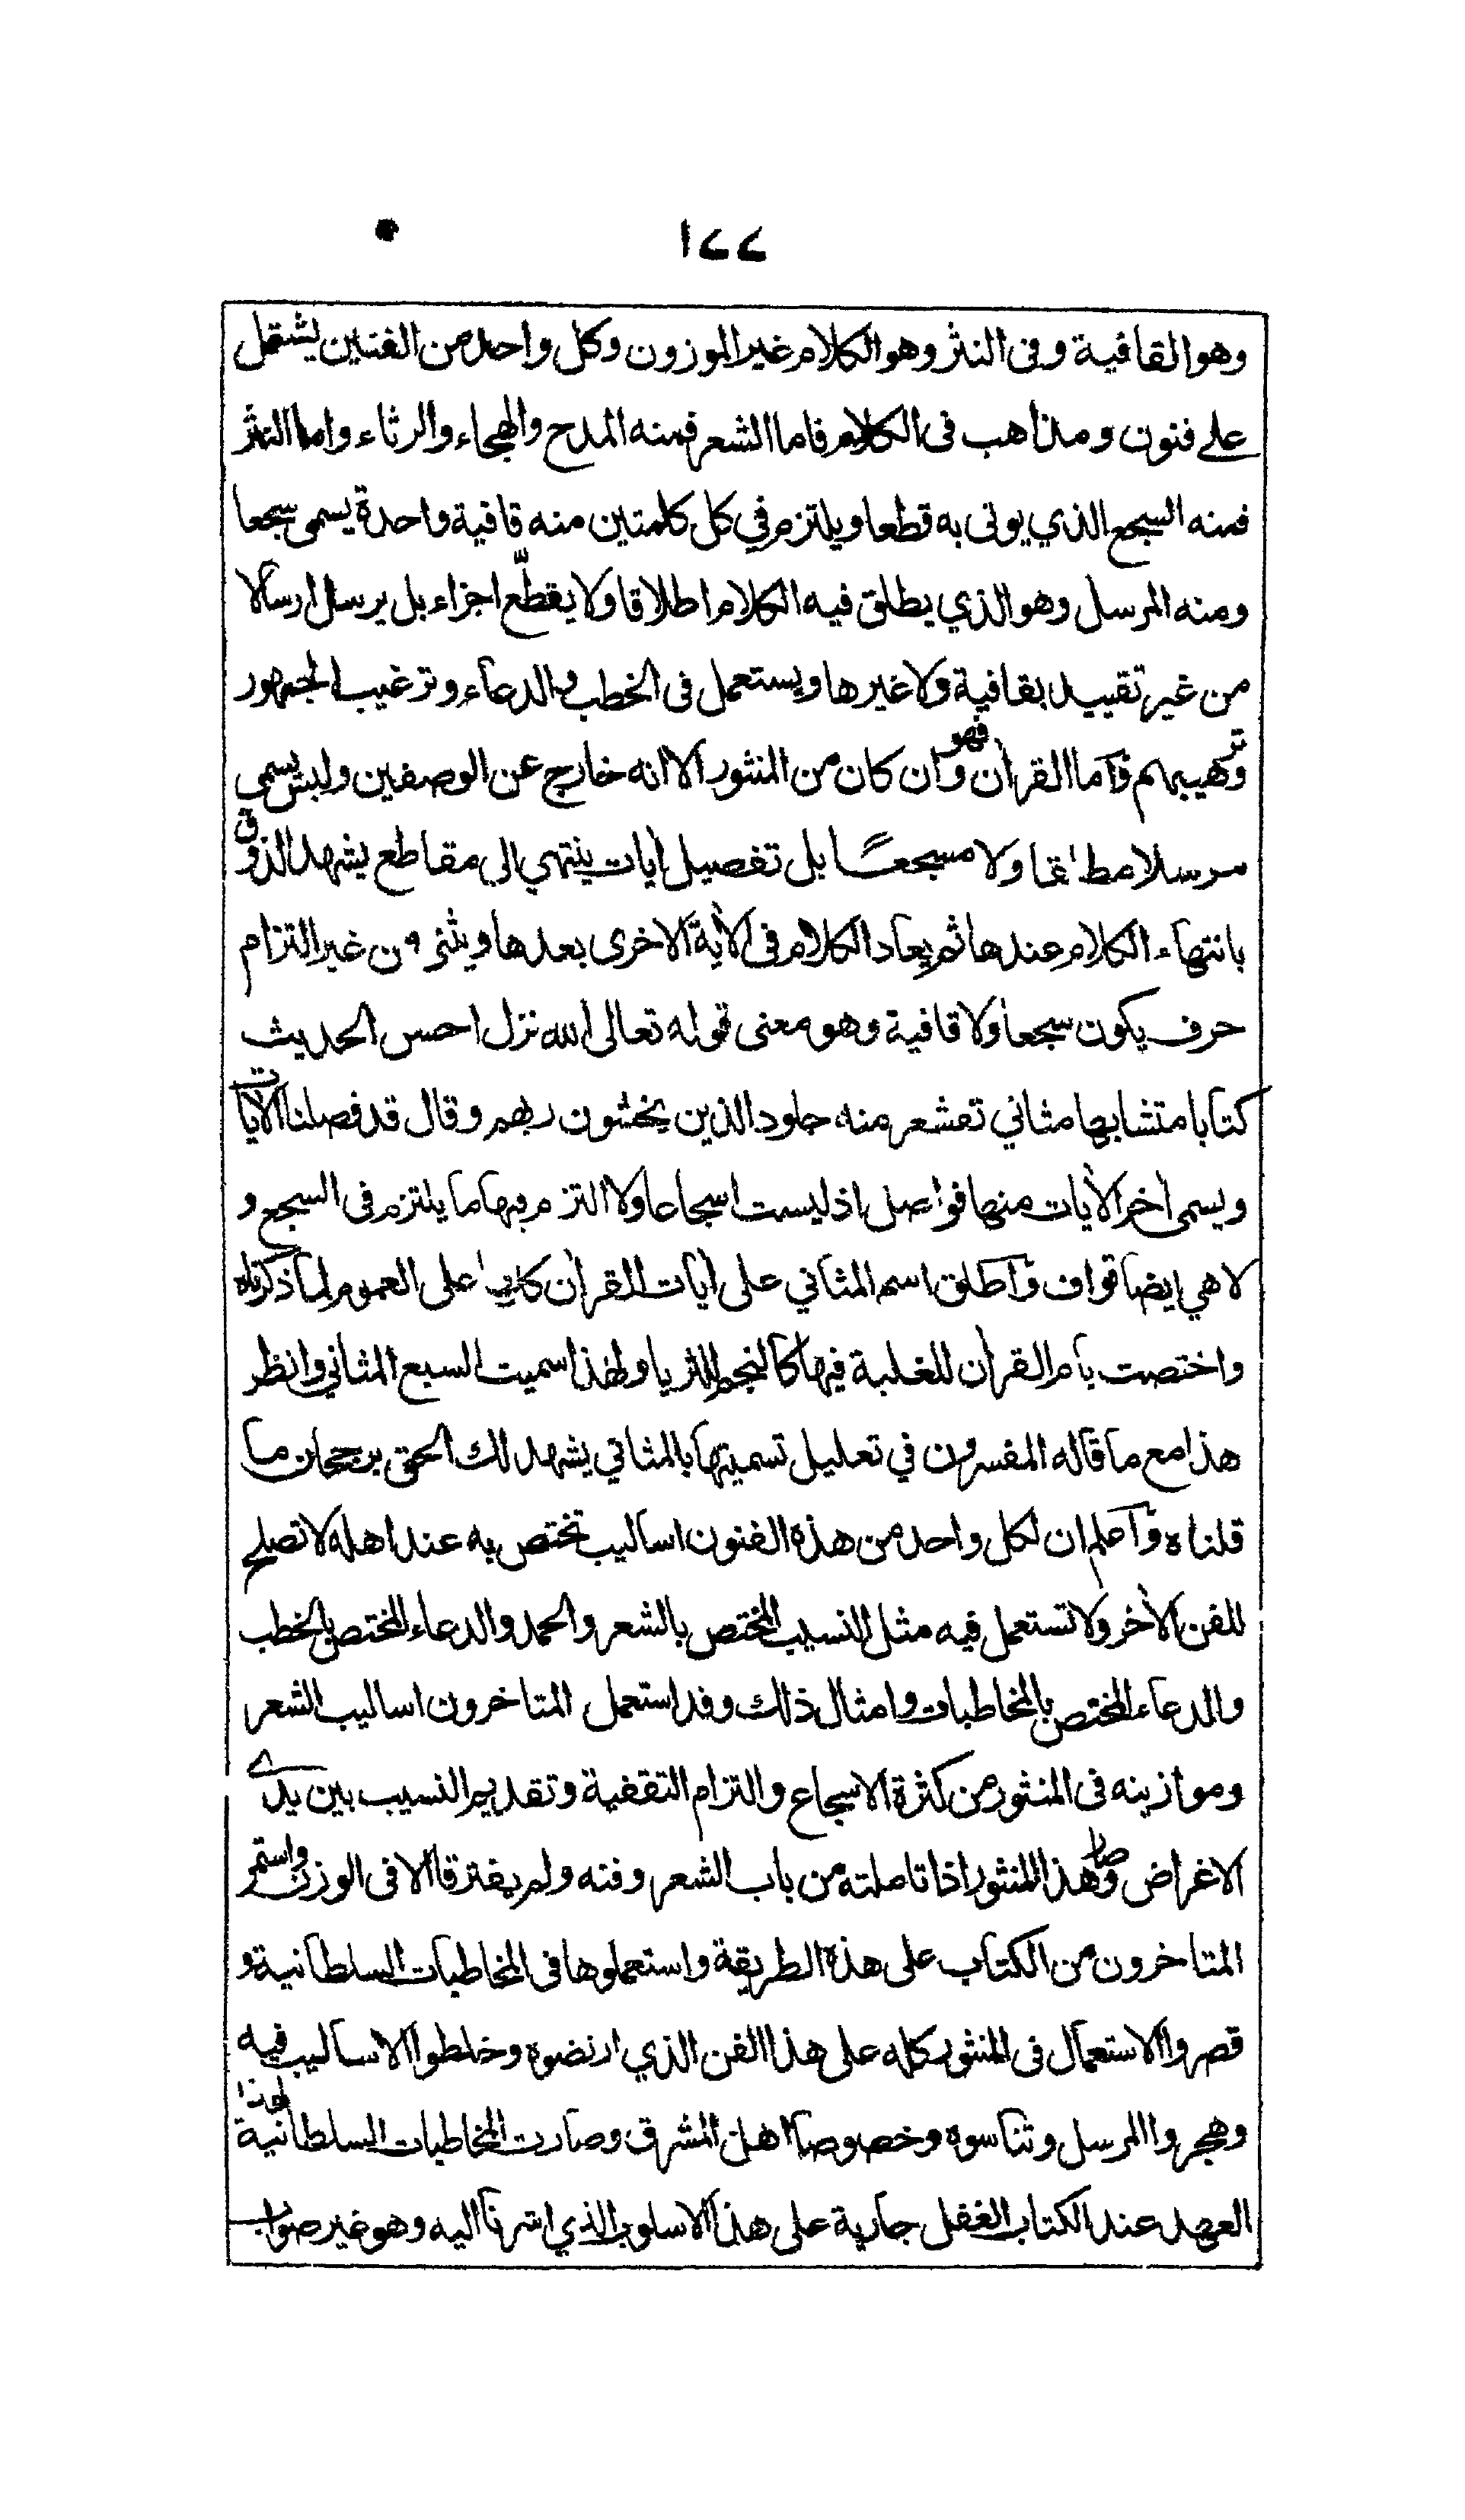 ١٢٢
وهو القافية وفى النثر وهو الكلام غير الموزون وكل واحد من الفنين يشتمل
على فنون ومذاهب فى الكلام فاما الشعر فمنه المدح والهجاء والرثاء واما النثر
فمنه السجع الذي يوتى به قطعا ويلتزم في كل كلمتين منه قافية واحدة يسمى سجعا
ومنه المرسل وهو الذي يطلق فيه الكلام اطلاقا ولا يقطّع اجزاء بل يرسل ارسالا
من غير تقييد بقافية ولا غيرها ويستعمل فى الخطب والدعاء وترغيب الجمهور
وترهيبهم وأما القرأن فهو وان كان من المنثور الا انه خارج عن الوصفين وليس يسمى
مرسلا مطلقا ولا مسجعًا بل تفصيل أيات ينتهي الى مقاطع يشهد الذوق
بانتهاء الكلام عندها ثم يعاد الكلام فى الأية الاخرى بعدها ويثنى من غير التزام
حرف يكون سجعا ولا قافية وهو معنى قوله تعالى الله نزل احسن الحديث
كتابا متشابها مثاني تقشعر منه جلود الذين يخشون ربهم وقال قد فصلنا الأيات
ويسمى أخر الأيات منها فواصل اذ ليست اسجاعا ولا التزم بها ما يلتزم فى السجع و
لا هي ايضا قواف وأطلق اسم المثاني على أيات القرأن كلها على العموم لما ذكرناه
واختصت بام القرأن للغلبة فيها كالنجم للثريا ولهذا سميت السبع المثاني وانظر
هذا مع ما قاله المفسرون في تعليل تسميتها بالمثاني يشهد لك الحق برجحان ما
قلناه وأعلم ان لكل واحد من هذه الفنون اساليب تختص به عند اهله لا تصلح
للفن الأخر ولا تستعمل فيه مثل النسيب المختص بالشعر والحمد والدعاء المختص بالخطب
والدعاء المختص بالمخاطبات وامثال ذلك وقد استعمل المتاخرون اساليب الشعر
وموازينه فى المنثور من كثرة الاسجاع والتزام التقفية وتقديم النسيب بين يدے
الاغراض وصار هذا المنثور اذا تاملته من باب الشعر وفنه ولم يفترقا الا فى الوزن واستمر
المتاخرون من الكتاب على هذه الطريقة واستعملوها فى المخاطبات السلطانية و
قصروا الاستعمال فى المنثور كله على هذا الفن الذي ارتضوه وخلطوا الاساليب فيه
وهجروا المرسل وتناسوه وخصوصا اهل المشرق وصارت المخاطبات السلطانية لهذا
العهد عند الكتاب الغفل جارية على هذا الاسلوب الذي اشرنا اليه وهو غير صواب